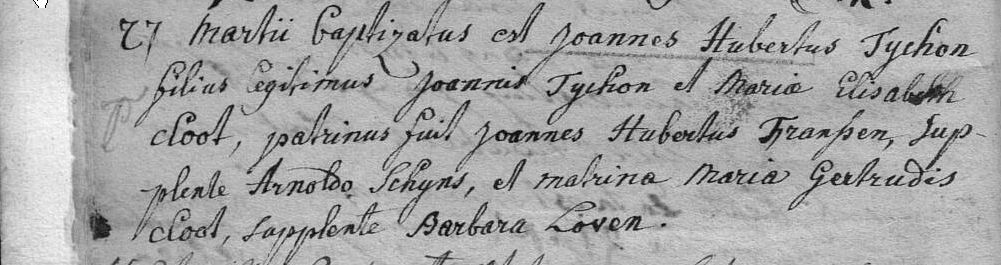 27 Martii baptizatus est Joannes Hubertus Tychon
filius legitimus Joannis Tychon et Mariæ Elisabeth
Cloot, patrinus fuit Joannes Hubertus Franssen, sup-
plente Arnoldo Schyns, et matrina Maria Gertrudis
Cloot, supplente Barbara Loven.